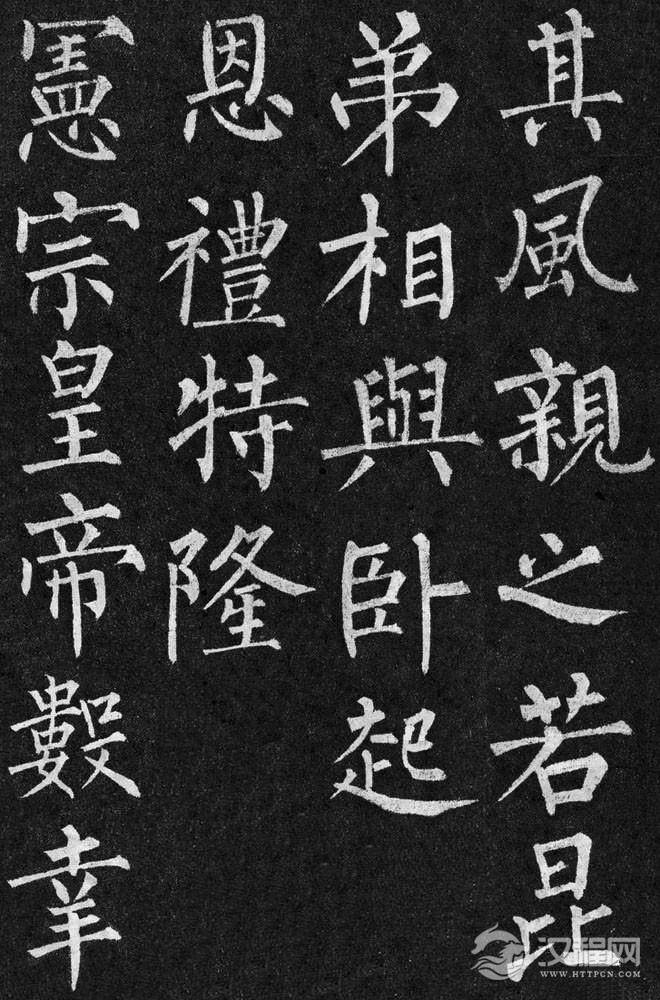 其風親之若昆
弟相與卧起
恩禮特隆
憲宗皇帝數幸
汉程网
WWW.HTTPCN.COM